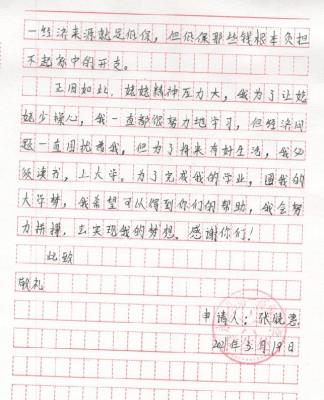 一经济来源就是低保，但低保那些钱根本负担
不起家中的开支。
正因如此，姥姥精神压力大，我为了让姥
姥少操心，我一直都很努力地学习，但经济问
题一直困扰着我，但为了将来有好生活，我必
须读书，上大学。为了完成我的学业，圆我的
大学梦，我希望可以得到你们的帮助，我会努
力拼搏，去实现我的梦想。感谢你们！
此致
敬礼
申请人：张晓
年5月19日